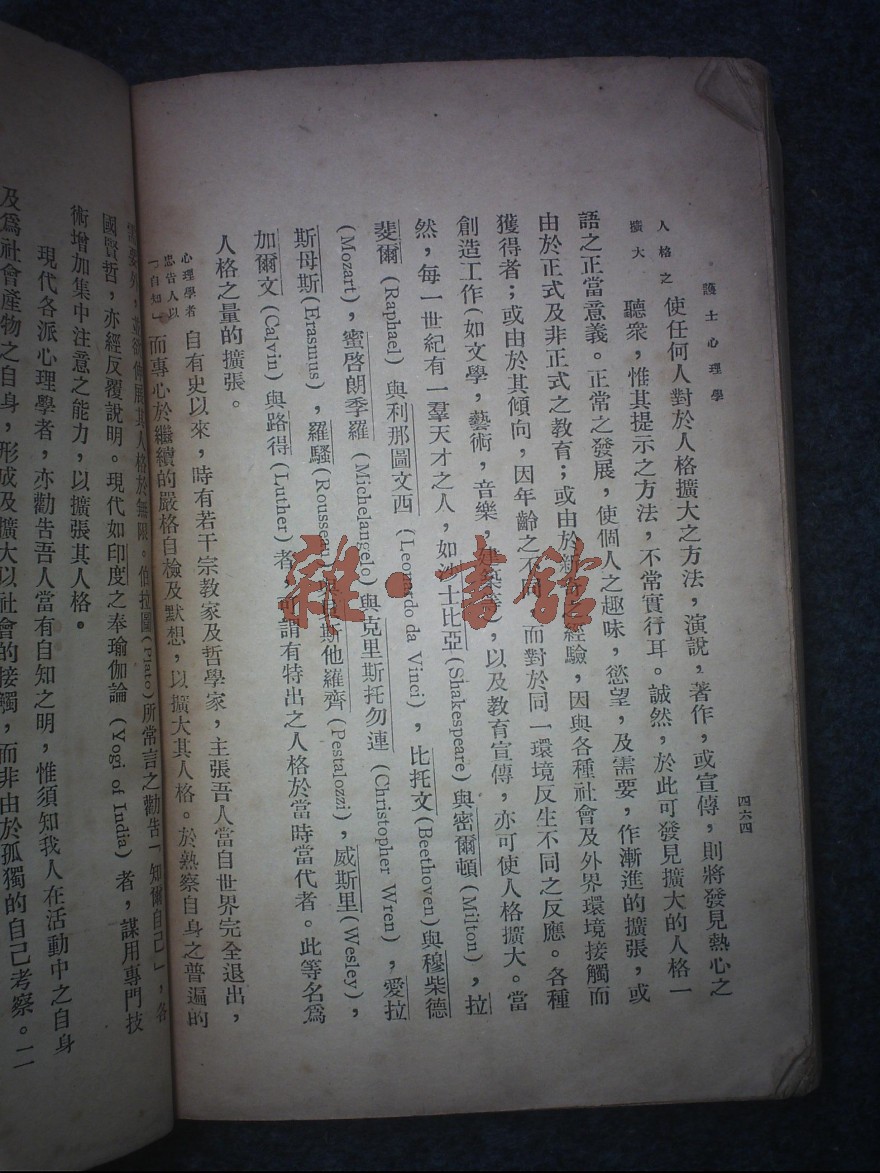 護士心理學
四六四
人格之
擴大
使任何人對於人格擴大之方法，演說，著作，或宣傳，則將發見熱心之
聽衆，惟其提示之方法，不常實行耳。誠然，於此可發見擴大的人格一
語之正當意義。正常之發展，使個人之趣味，慾望，及需要，作漸進的擴張，或
由於正式及非正式之教育；或由於新奇之經驗，因與各種社會及外界環境接觸而
獲得者；或由於其傾向，因年齡之不同，而對於同一環境反生不同之反應。各種
創造工作(如文學，藝術，音樂，建築等)，以及教育宣傳，亦可使人格擴大。當
然，每一世紀有一羣天才之人，如沙士比亞(Shakespeare)與密爾頓(Milton)，拉
斐爾(Raphael)與利那圖文西(Leonardo da Vinci)，比托文(Beethoven)與穆柴德
(Mozart)，蜜啓朗季羅(Michelangelo)與克里斯托勿連(Christopher Wren)，愛拉
斯母斯(Erasmus)，羅騷(Rousseau 斯他羅齊(Pestalozzi)，威斯里(Wesley)，
加爾文(Calvin)與路得(Luther)者，可謂有特出之人格於當時當代者。此等名爲
人格之量的擴張。
心理學者
忠告人以
「自知」
自有史以來，時有若干宗教家及哲學家，主張吾人當自世界完全退出，
而專心於繼續的嚴格自檢及默想，以擴大其人格。於熟察自身之普遍的
需要外，並欲伸展其人格於無限。伯拉圖(Plato)所常言之勸告「知爾自己」，各
國賢哲，亦經反覆說明。現代如印度之奉瑜伽論(Yogi of India)者，謀用專門技
術增加集中注意之能力，以擴張其人格。
現代各派心理學者，亦勸告吾人當有自知之明，惟須知我人在活動中之自身
及爲社會產物之自身，形成及擴大以社會的接觸，而非由於孤獨的自己考察。二
雜·書館